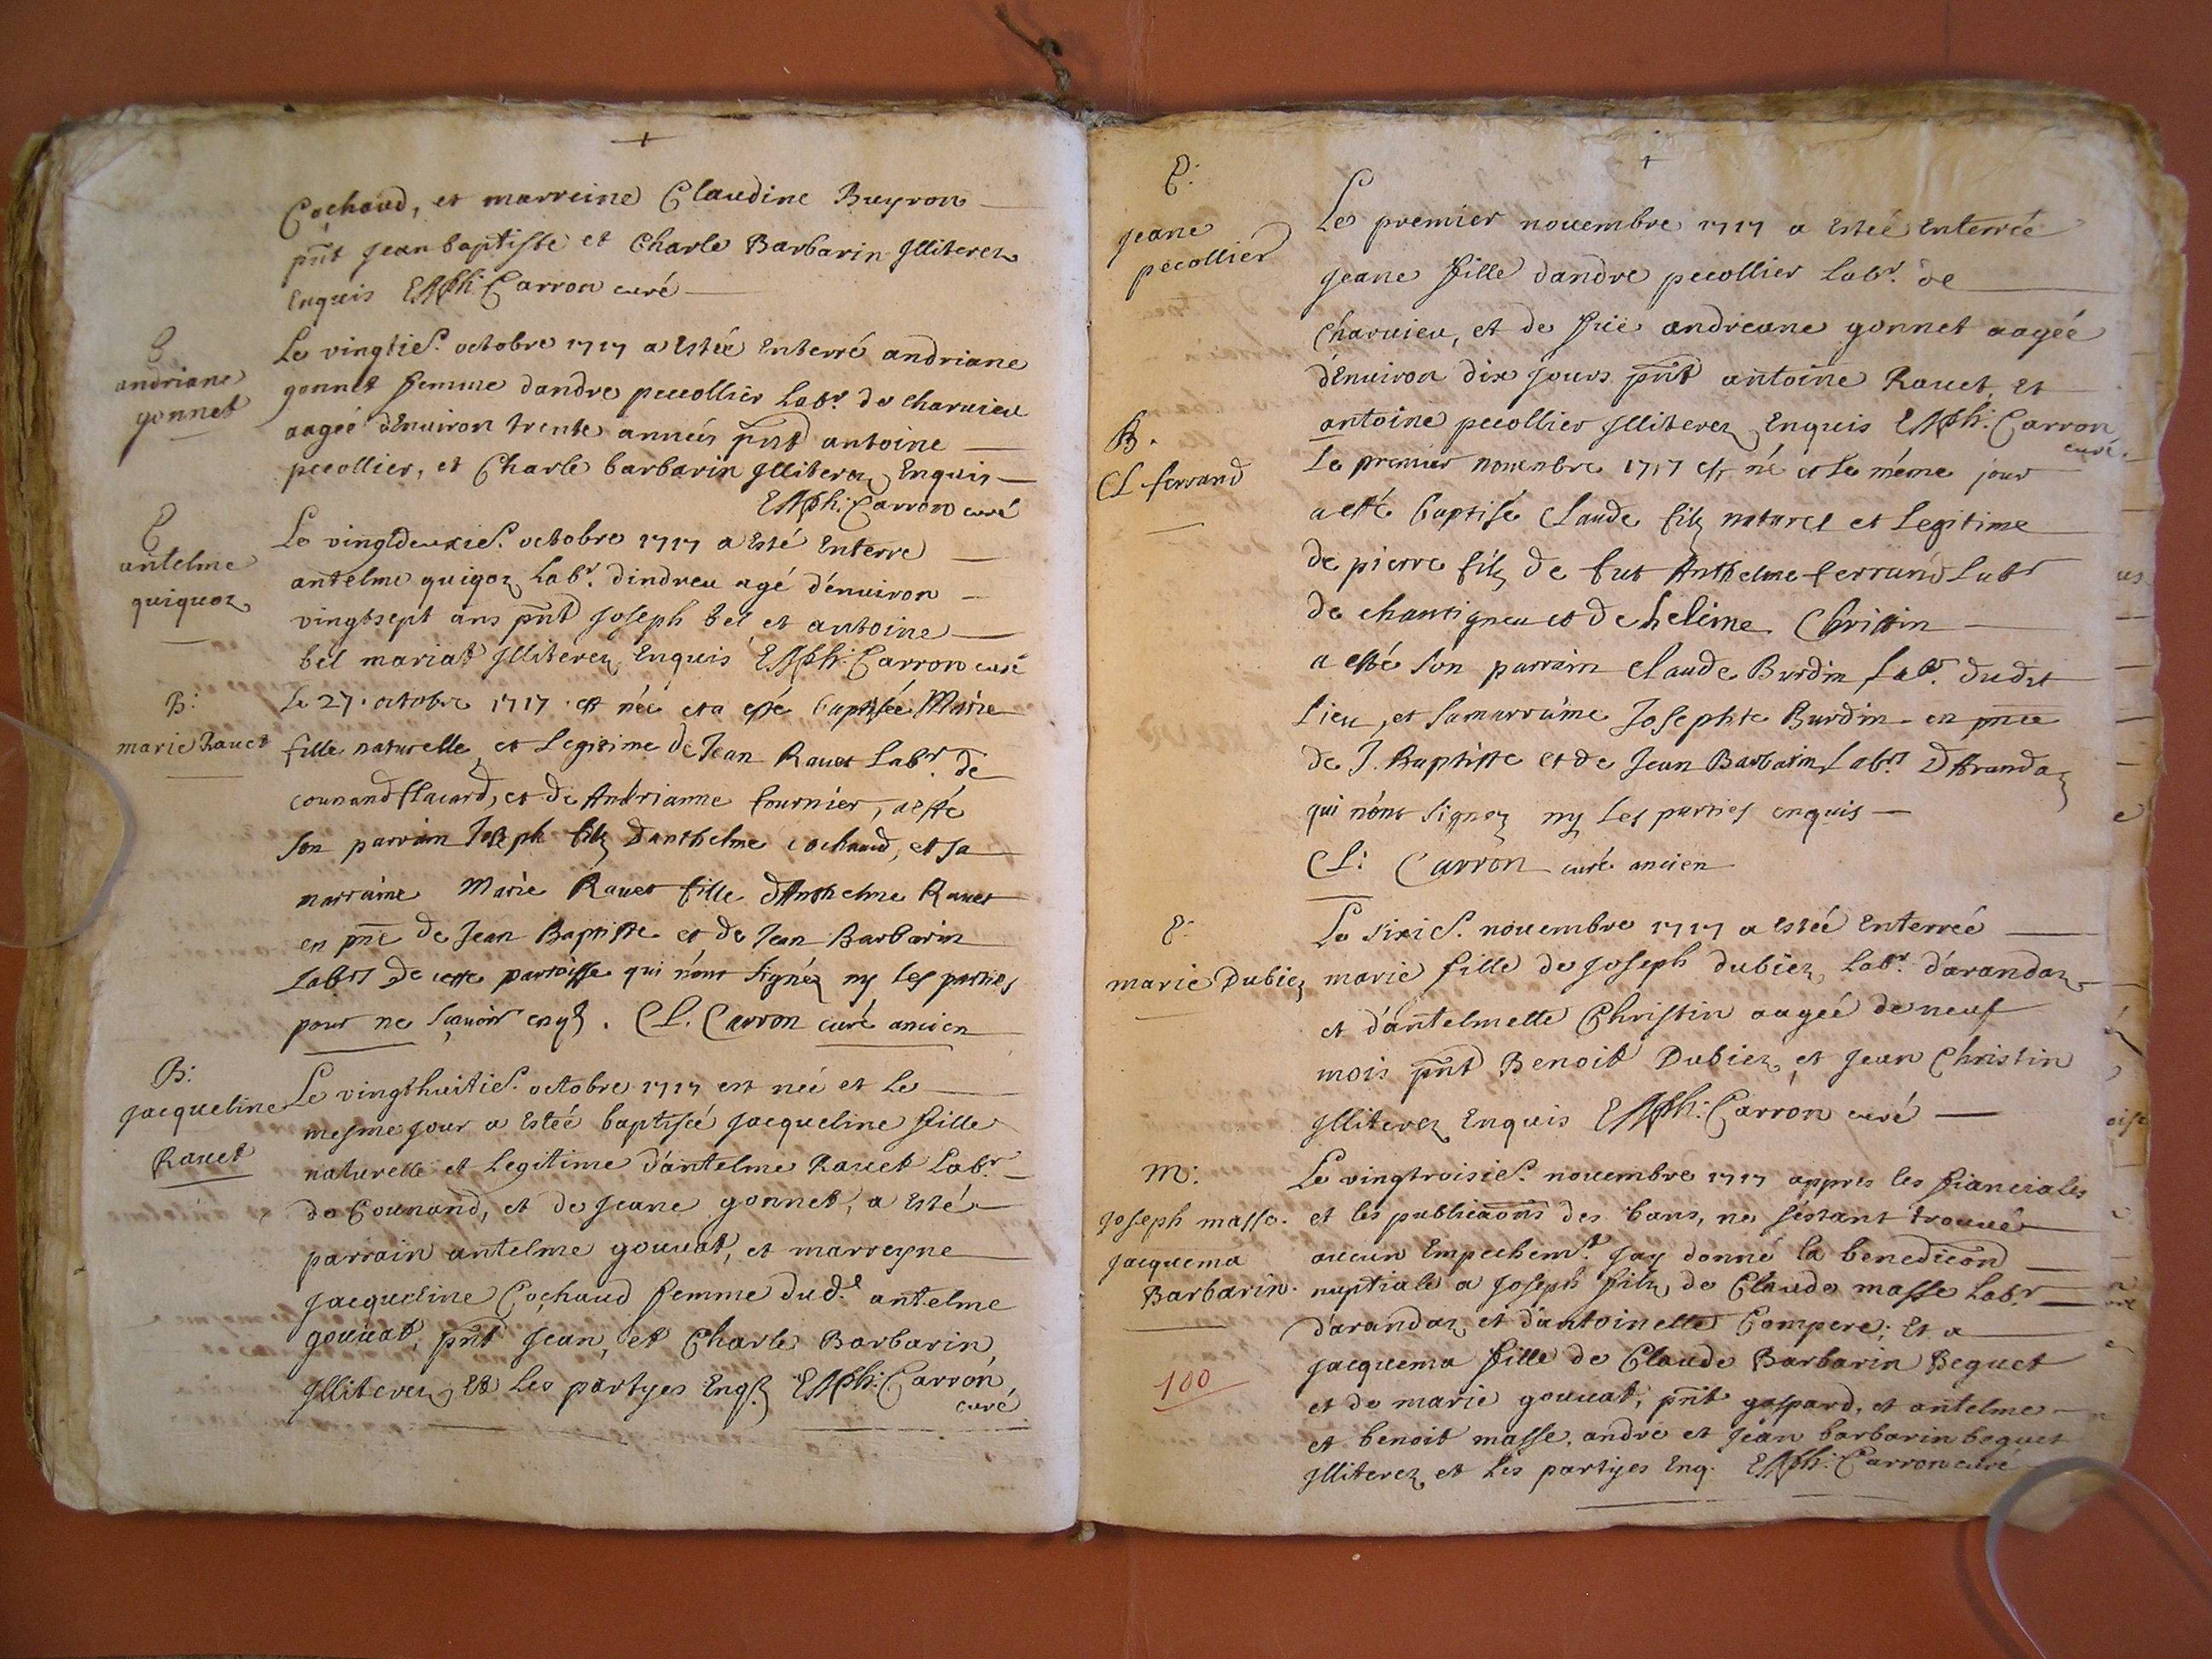 +
Cochaud, et marreine Claudine Buyron
pnt Jean baptiste et Charle Barbarin Jlliterez
Enquis Carron curé
E
andriane
gonnet
Le vingties. octobre 1717 a Estée Enterré andriane
gonnet femme dandre pecollier Labr. de charuieu
aageé dEnuiron trente années pnt antoine
pecollier, et Charle barbarin Jlliterez Enquis
Carron curé
E
antelme
quiquoz
Le vingtdeuxies. octobre 1717 a Esté Enterre
antelme quiqoz Labr. dindreu agé d'enuiron
vingtsept ans pnt Joseph bel et antoine
bel mariat Jlliterez Enquis Carron curé
B:
marie Rauet
Le 27. octobre 1717. est née et a esté baptisée Marie
fille naturelle et Legitime de Jean Rauet Labr. de
counand flacard, et de Andrianne fournier, a esté
son parrain Joseph filz Danthelme cochaud, et sa
marraine Marie Rauet fille dAnthelme Rauet
en pnce de Jean Baptiste et de Jean Barbarin
Labrs de cette paroisse qui n'ont signéz ny les parties
pour ne sçauoir enqs. CL. Carron curé ancien
B:
Jacqueline
Rauet
Le vingthuities. octobre 1717 est née et le
mesme jour a Estée baptisée Jacqueline fille
naturelle et Legitime d'antelme Rauet Labr.
de Counand, et de Jeane gonnet, a Esté
parrain antelme gouuat, et marreyne
Jacqueline Cochaud femme dud.t antelme
gouuat, pnt Jean, et Charle Barbarin,
Jlliterez, Et les partyes Enq. Carron,
curé
+
E:
Jeane
pecollier
Le premier nouembre 1717 a Estée Enterrée
Jeane fille dandre pecollier Labr. de
Charuieu, et de andreane gonnet aageé
d'Enuiron dix Jours pnt antoine Rauet, Et
antoine pecollier Jlliterez Enquis Carron
curé.
B.
CL ferrand
Le premier nouenbre 1717 est né et le méme jour
a esté baptisé Claude filz naturel et Legitime
de pierre filz de fut Anthelme ferrand Labr
de chantigneu et de helene Christin
a esté son parrain Claude Burdin Labr. dudit
lieu, et sa marraine Josephte Burdin en pnce
de J. Baptiste et de Jean Barbarin Labrs DArandaz
qui n'ont signez ny les parties enquis
CL: Carron curé ancien
E:
marie Dubiez
Le sixies. nouembre 1717 a Estée Enterrée
marie fille de Joseph dubiez Labr. d'arandaz
et d'antelmette Christin aageé de neuf
mois pnt Benoit Dubiez, et Jean Christin
Jlliterez Enquis Carron curé
M:
Joseph masse.
Jacquema
Barbarin.
Le vingtroisies. nouembre 1717 appres les fianciales
et les publicaons des bans, ne sestant trouué
aucun Empechemt. Jay donné la benedicon
nuptiale a Joseph filz de Claude masse Labr
d'arandaz et d'antoinette Compere; Et a
Jacquema fille de Claude Barbarin Beguet
et de marie gouuat, pnt gaspard, et antelme
et benoit masse, andré et Jean barbarin beguet
Jlliterez et les partyes Enq. Carron curé
100